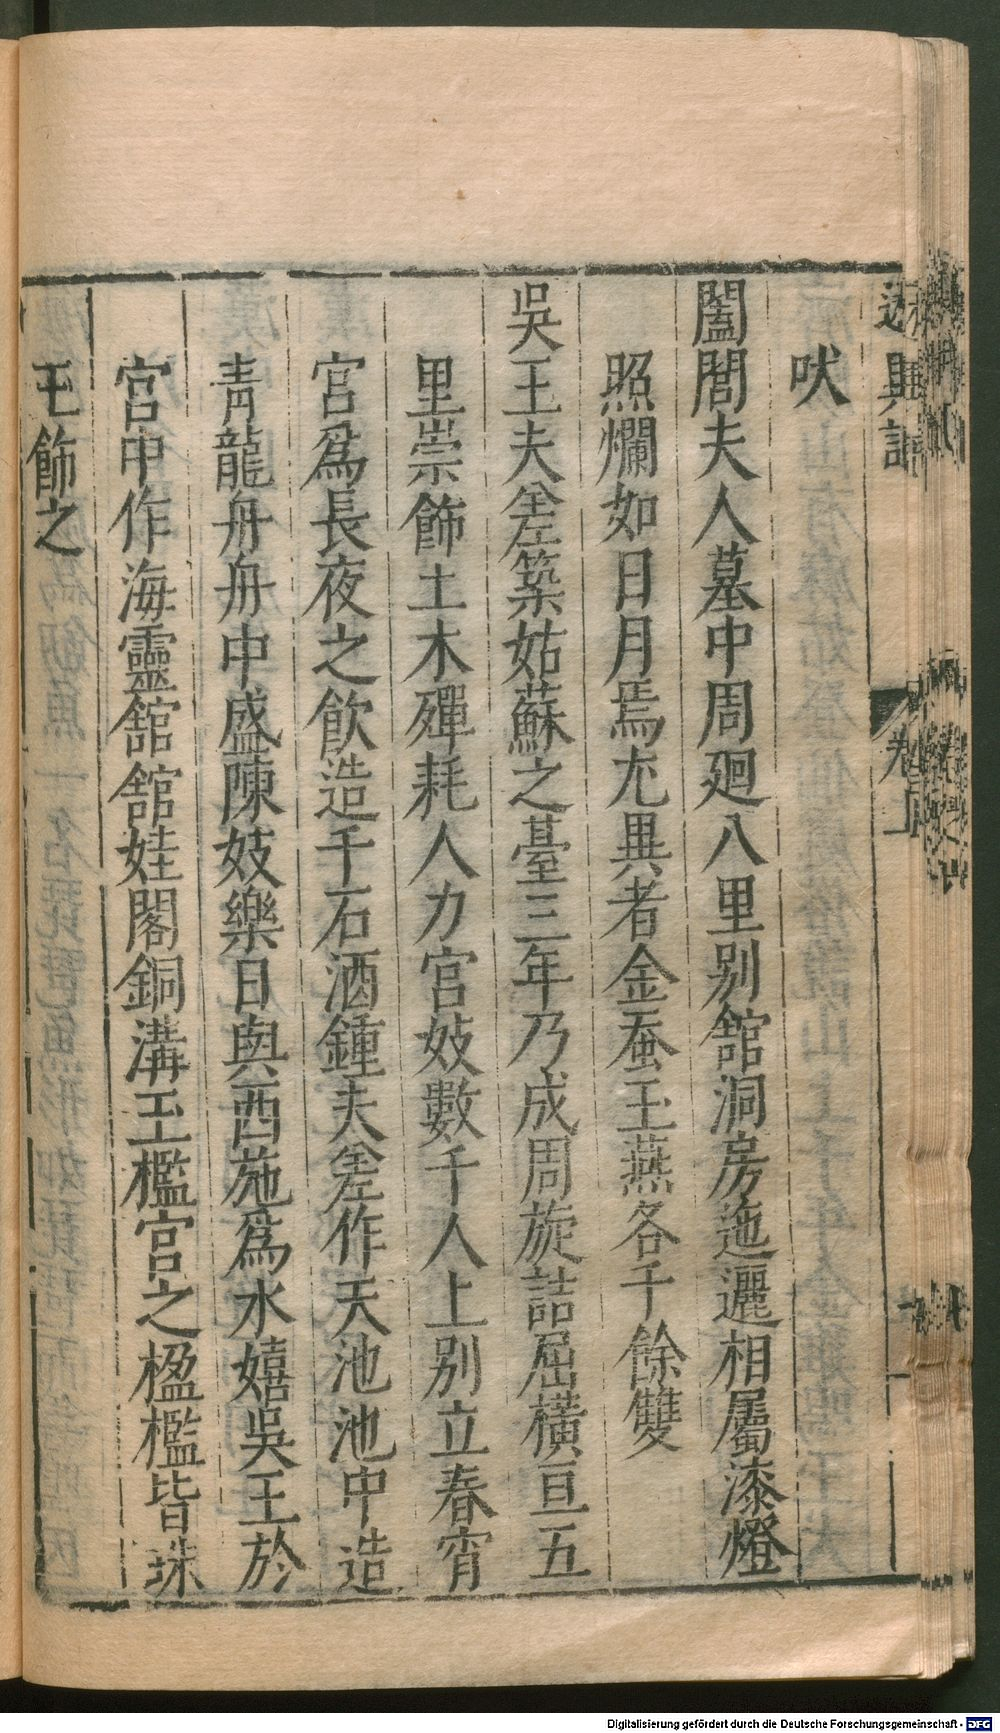 述異記
卷上
吠
闔閭夫人墓中周廻八里别館洞房迤邐相屬漆燈
照爛如日月焉尤異者金蚕玉燕各千餘雙
吳王夫差築姑蘇之臺三年乃成周旋詰屈橫亘五
里崇飾土木殫耗人力宮妓數千人上别立春宵
宮爲長夜之飲造千石酒鍾夫差作天池池中造
青龍舟舟中盛陳妓樂日與西施爲水嬉吳王於
宮中作海靈館館娃閣銅溝玉檻宮之楹檻皆珠
玉飾之
Digitalisierung gefördert durch die Deutsche Forschungsgemeinschaft - DFG